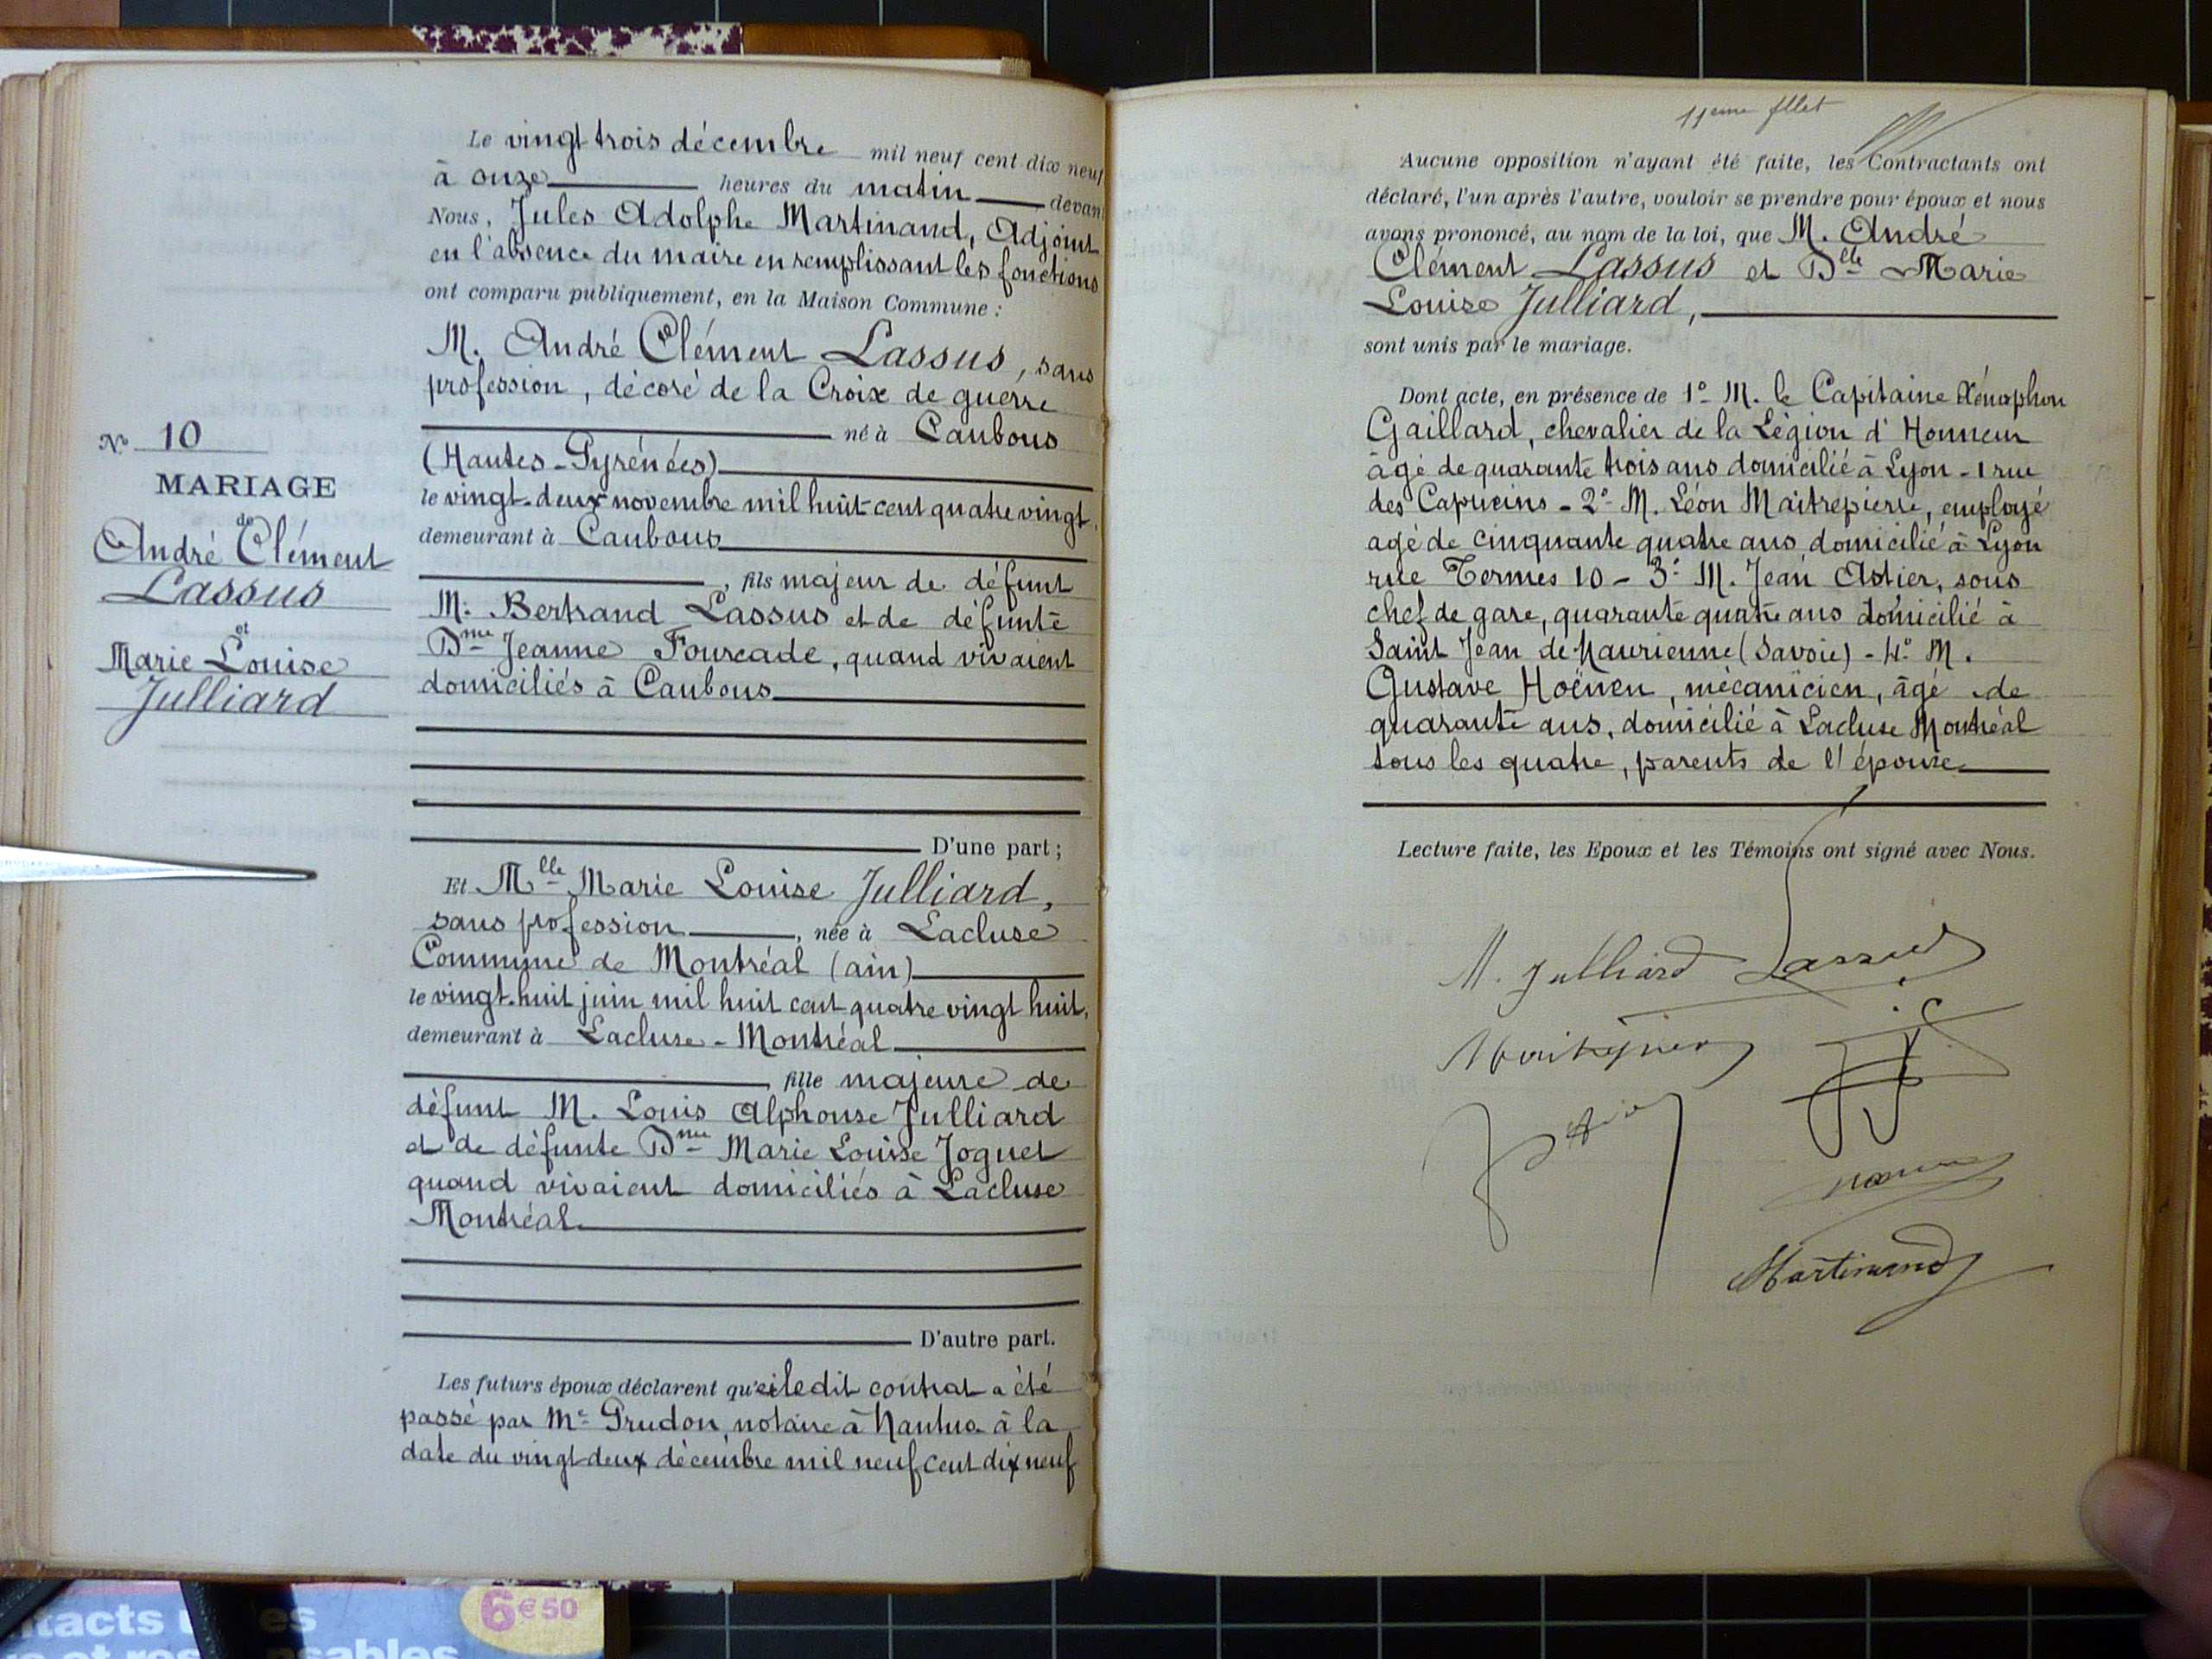 N° 10
MARIAGE
de
André Clément
Lassus
et
Marie Louise
Julliard
Le vingt trois décembre mil neuf cent dix neuf
à onze heures du matin devant
Nous, Jules Adolphe Martinand, Adjoint
en l'absence du maire en remplissant les fonctions
ont comparu publiquement, en la Maison Commune :
M. André Clément Lassus, sans
profession, décoré de la Croix de guerre
né à Caubous
(Hautes-Pyrénées)
le vingt-deux novembre mil huit cent quatre vingt,
demeurant à Caubous
, fils majeur de défunt
M. Bertrand Lassus et de défunte
Dme Jeanne Fourcade, quand vivaient
domiciliés à Caubous
D'une part ;
Et Mlle Marie Louise Julliard,
sans profession, née à Lacluse
Commune de Montréal (ain)
le vingt-huit juin mil huit cent quatre vingt huit,
demeurant à Lacluse - Montréal
, fille majeure de
défunt M. Louis Alphonse Julliard
et de défunte Dme Marie Louise Joguet
quand vivaient domiciliés à Lacluse
Montréal
D'autre part.
Les futurs époux déclarent qu'ledit contrat a été
passé par Me Prudon, notaire à Nantua à la
date du vingt deux décembre mil neuf cent dix neuf
11eme fllet
Aucune opposition n'ayant été faite, les Contractants ont
déclaré, l'un après l'autre, vouloir se prendre pour époux et nous
avons prononcé, au nom de la loi, que M. André
Clément Lassus et Dlle Marie
Louise Julliard,
sont unis par le mariage.
Dont acte, en présence de 1° M. le Capitaine Xénophon
Gaillard, chevalier de la Légion d'Honneur
âgé de quarante trois ans domicilié à Lyon - 1 rue
des Capucins - 2° M. Léon Maîtrepierre, employé
agé de cinquante quatre ans, domicilié à Lyon
rue Termes 10 - 3° M. Jean Astier, sous
chef de gare, quarante quatre ans domicilié à
Saint Jean de Maurienne (Savoie) - 4° M.
Gustave Hoënen, mécanicien, âgé de
quarante ans, domicilié à Lacluse Montréal
tous les quatre, parents de l'épouse
Lecture faite, les Epoux et les Témoins ont signé avec Nous.
M. Julliard Lassus
Martinand
6€50